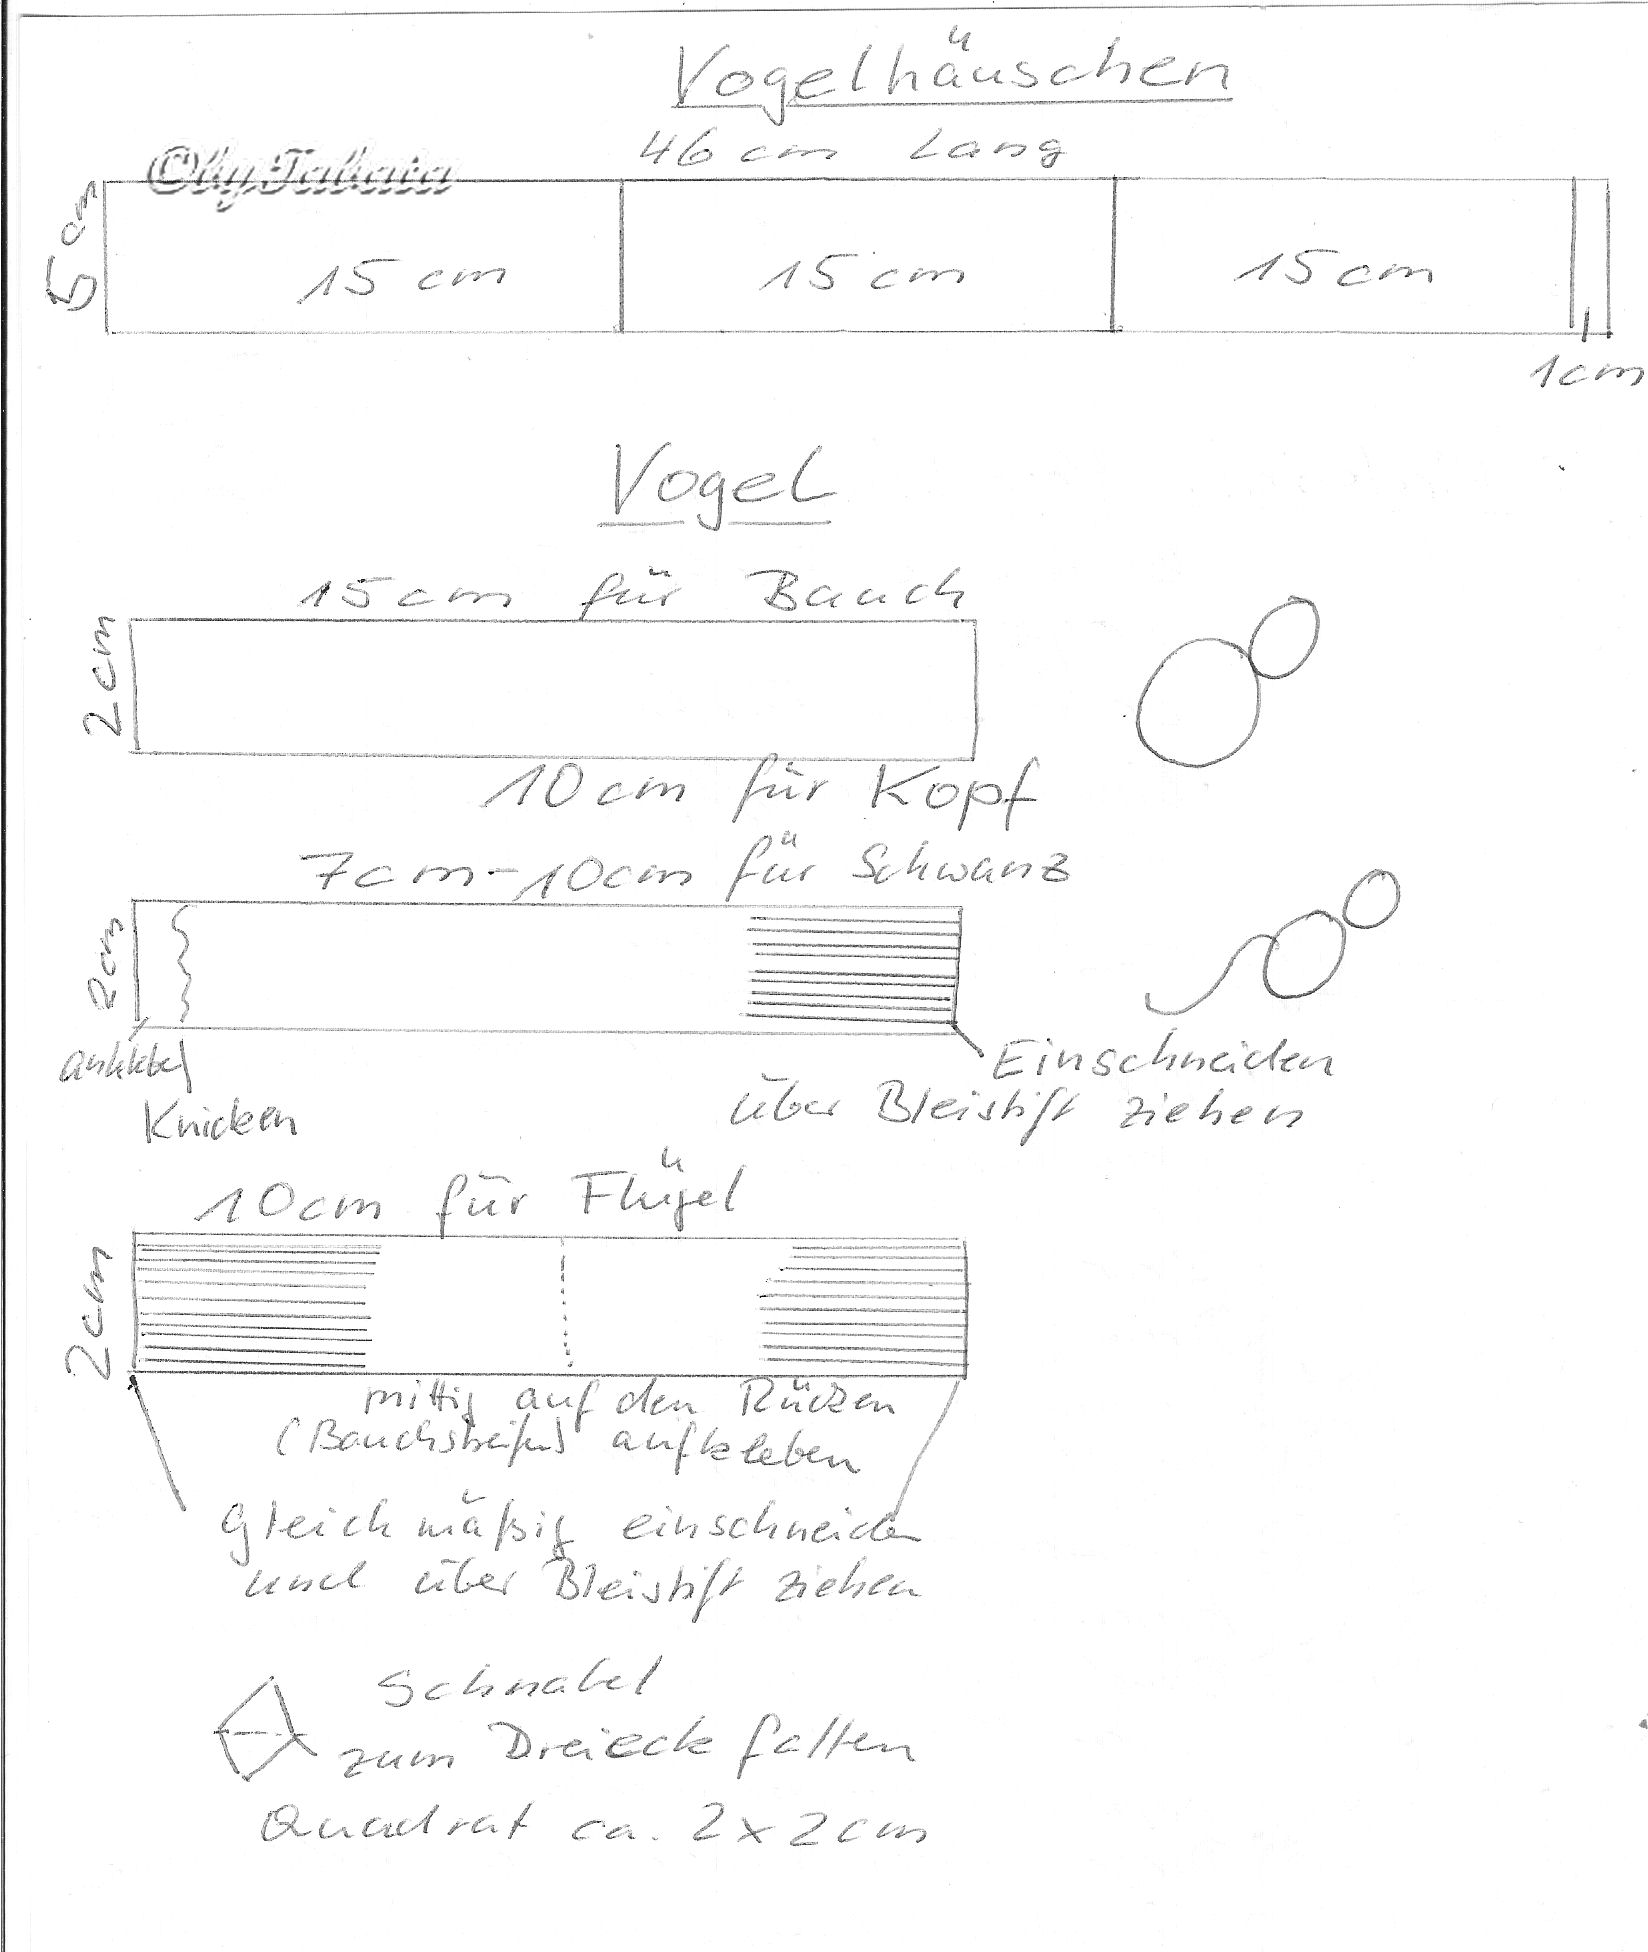 Vogelhäuschen
46 cm Lang
©byTabata
5 cm
15 cm 15 cm 15 cm
1cm
Vogel
15cm für Bauch
2cm
10cm für Kopf
7cm-10cm für Schwanz
2cm
ankleben
Knicken
Einschneiden
über Bleistift ziehen
10cm für Flügel
2cm
mittig auf den Rücken
(Bauchstreifen) aufkleben
Gleichmäßig einschneiden
und über Bleistift ziehen
Schnabel
zum Dreieck falten
Quadrat ca. 2x2cm